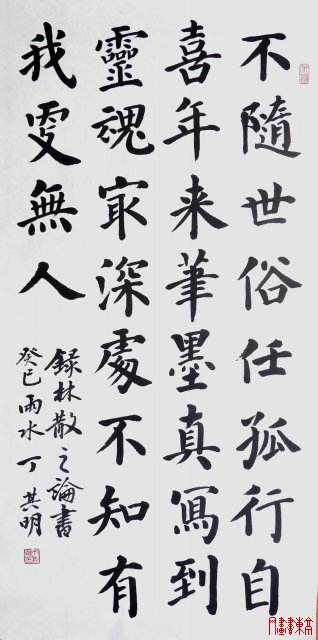 不隨世俗任孤行自
喜年来筆墨真寫到
靈魂㝡深處不知有
我更無人
録林散之論書
癸巳雨水丁其明